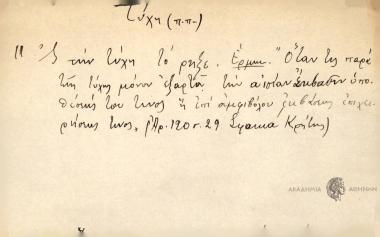 τύχη (π.π.)
11 Σ τὴν τύχη τὸ ρηξε. Ερμην. "Ὅταν τις παρὰ
τῆς τύχης μόνον ἐξαρτᾷ τὴν αἰσίαν ἔκβασιν ὑπο-
θέσεώς του τινος ἢ ἐπὶ ἀμφιβόλου ἐκβάσεως ἐπιχει-
ρήσεως τινος, (Ἀρ. 190 σ. 29 Σφακιά Κρήτης)
ΑΚΑΔΗΜΙΑ ΑΘΗΝΩΝ